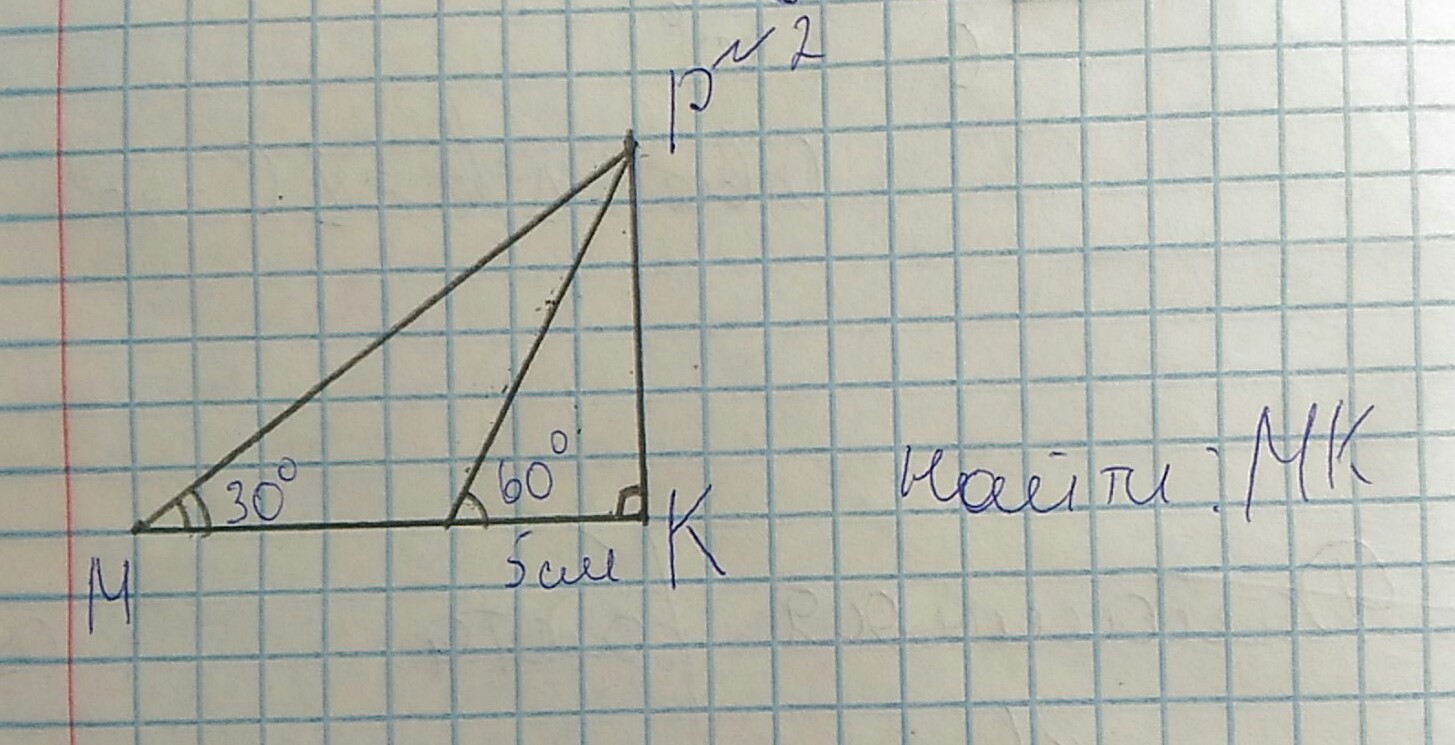 № 2
P
30°
60°
M
5см
K
найти: MK